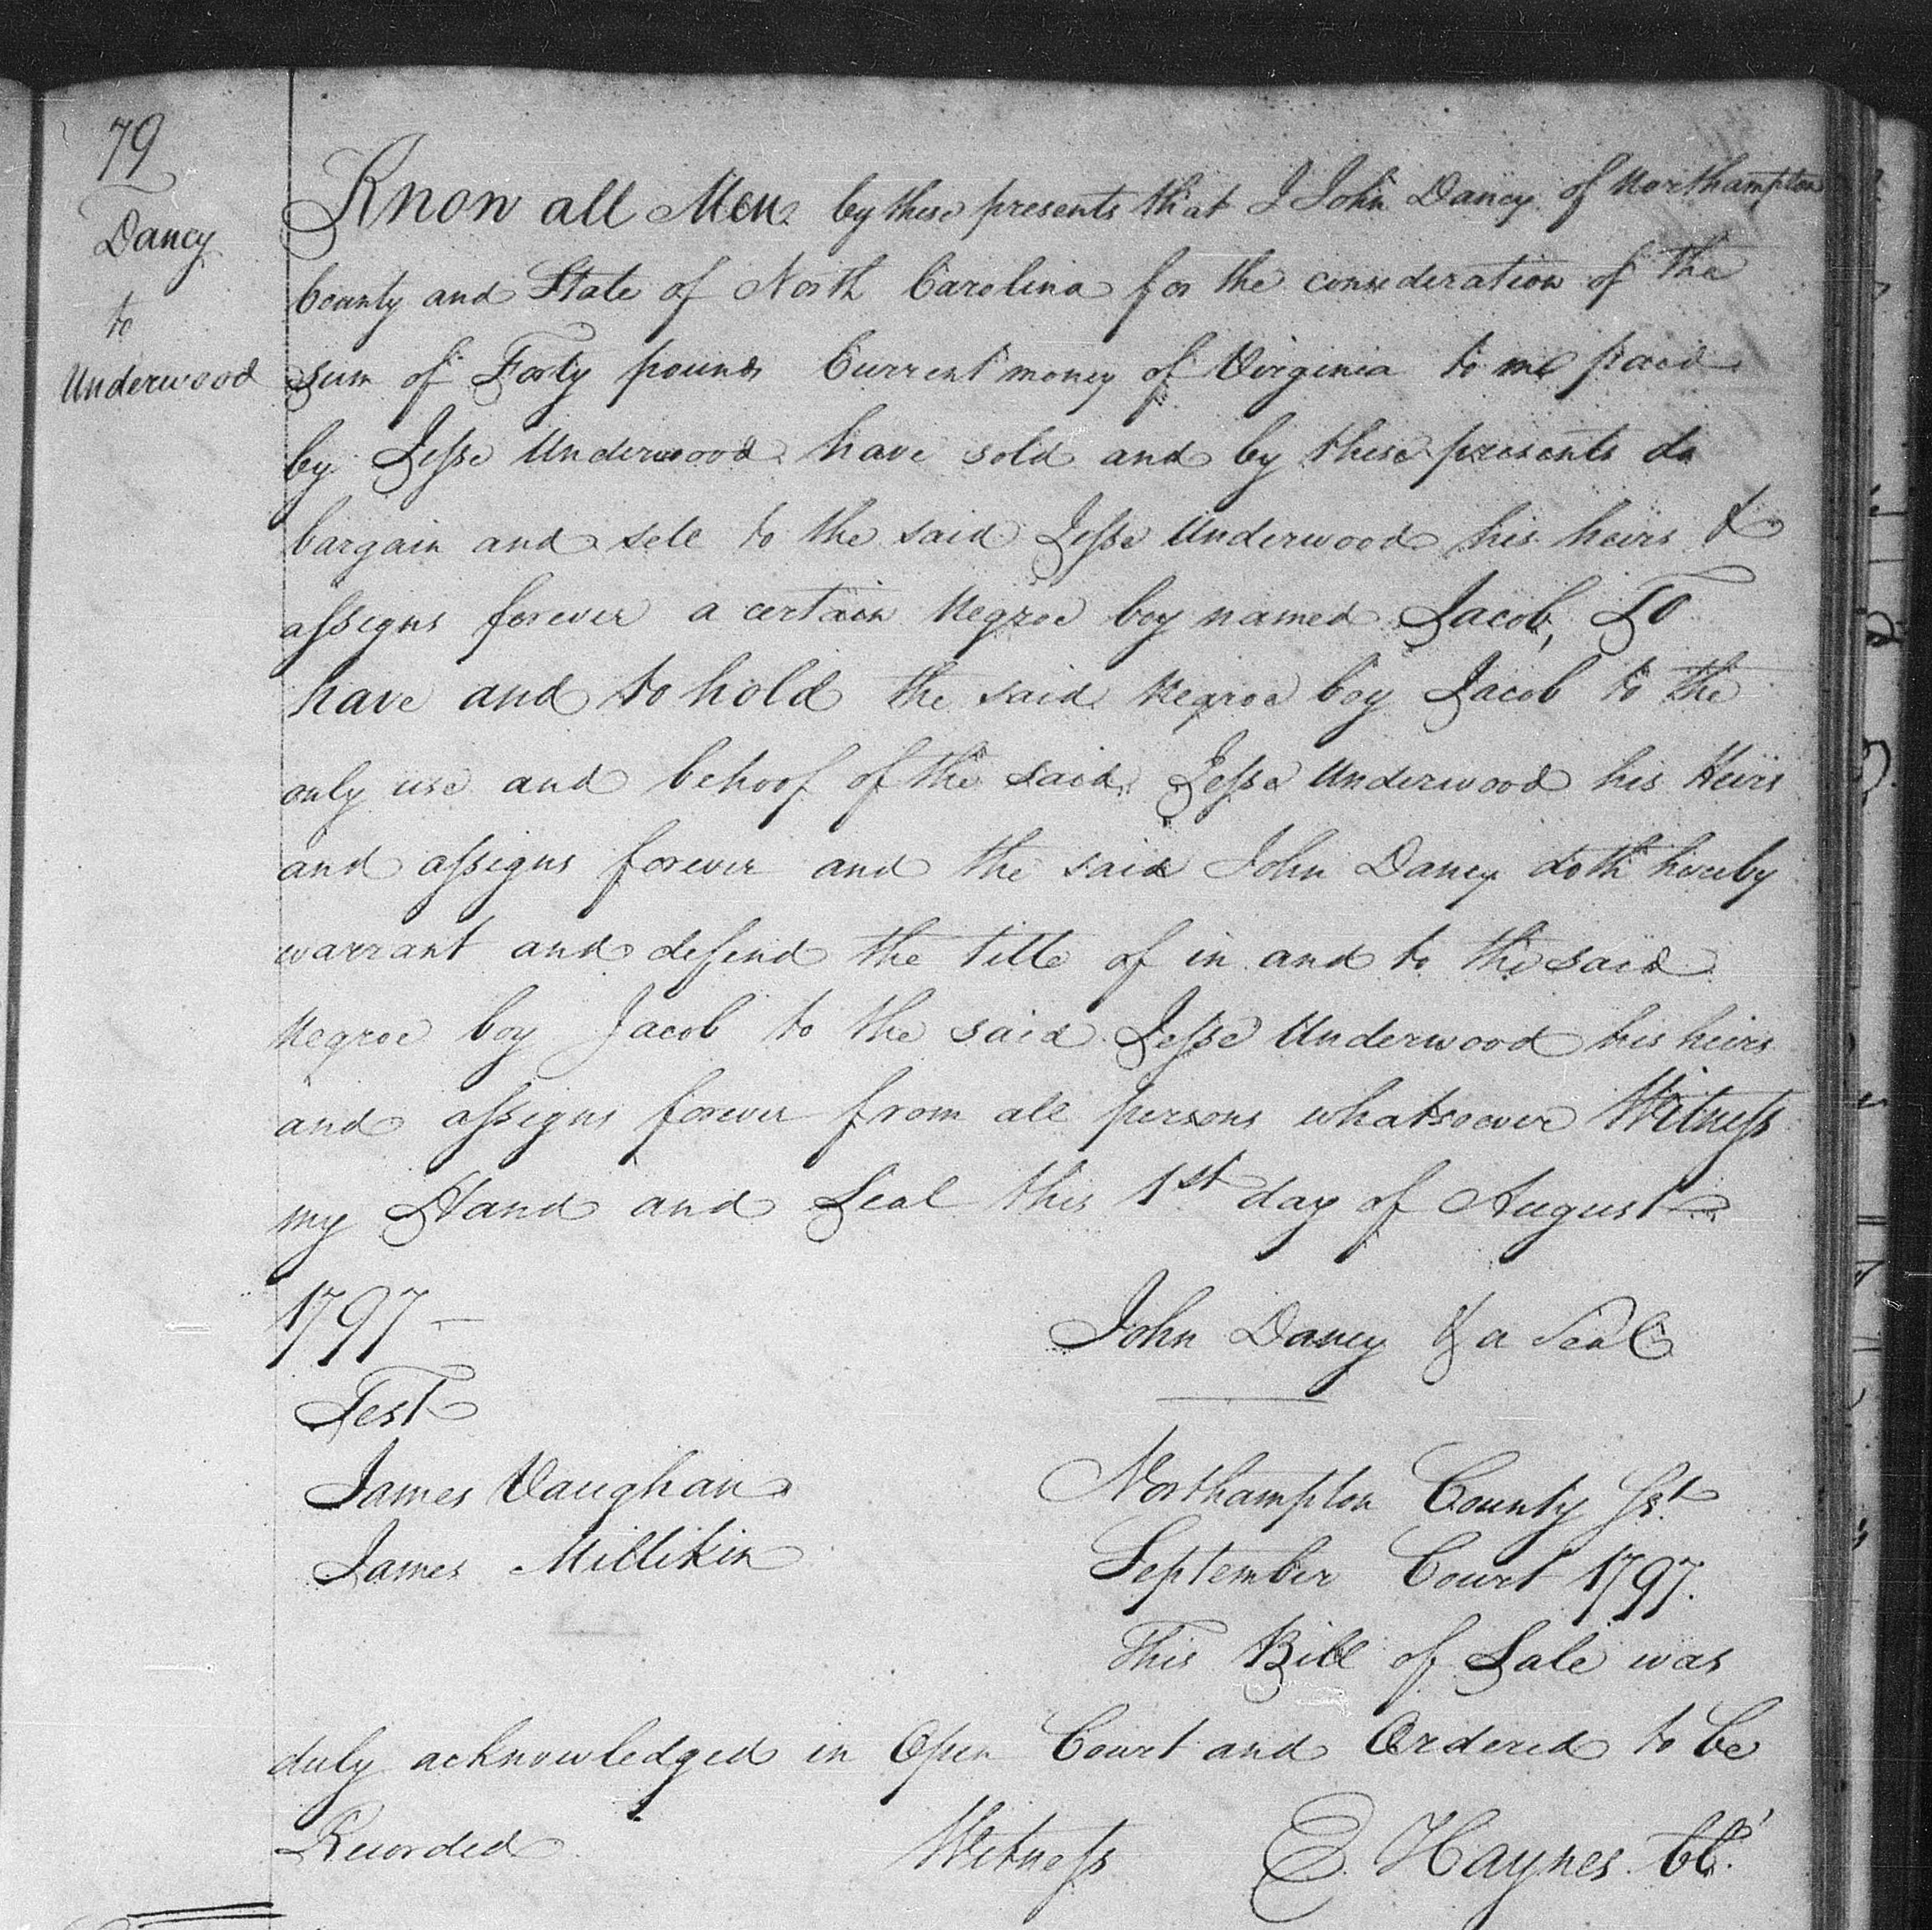 79
Dancy
to
Underwood
Know all Men by these presents that I John Dancy of Northampton
County and State of North Carolina for the consideration of the
sum of Forty pounds Current money of Virginia to me paid
by Jeſse Underwood have sold and by these presents do
bargain and sell to the said Jeſse Underwood his heirs &
aſsigns forever a certain Negroe boy named Jacob, To
have and to hold the said Negroe boy Jacob to the
only use and behoof of the said Jeſse Underwood his Heirs
and aſsigns forever and the said John Dancy doth hereby
warrant and defend the title of in and to the said
Negroe boy Jacob to the said Jeſse Underwood his heirs
and aſsigns forever from all persons whatsoever Witneſs
my Hand and Seal this 1st day of August
1797 –
John Dancy & a Seal
Test
James Vaughan
James Millikin
Northampton County Sst
September Court 1797.
This Bill of Sale was
duly acknowledged in Open Court and Ordered to be
Recorded
Witneſs E. Haynes Cl.